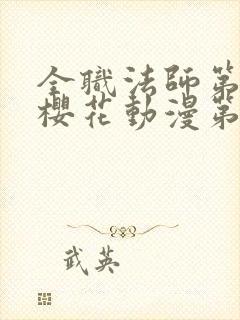 全職法師第
櫻花動漫第
武英